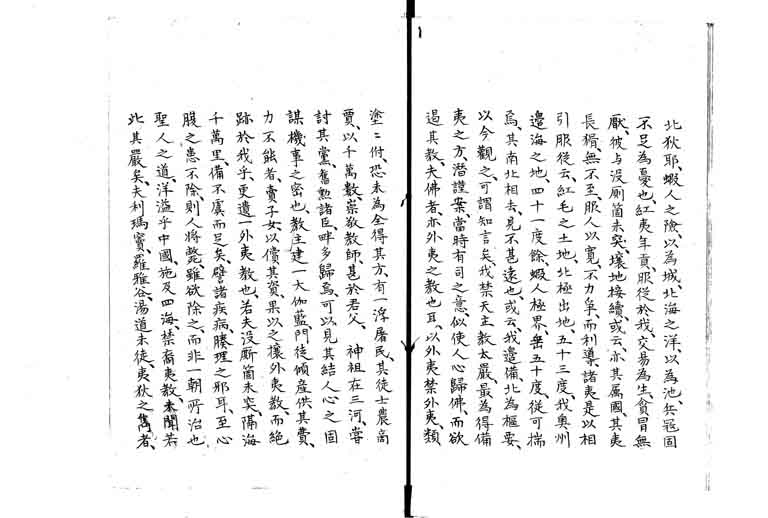 北狄耶、蝦人之險、以為城、北海之洋、以為池、兵寇固
不足為憂也、紅夷年貢、服從於我、交易為生、貪冒無
厭、彼与没厠箇未突、壤地接續、或云、亦其属國、其夷
長猾、無不至服人以寛、不力爭、而利導、諸夷是以相
引服従云、紅毛之土地、北極出地、五十三度、我奥州
邊海之地、四十一度餘、蝦人極界、畧五十度、從可揣
焉、其南北相去、見不甚遠也、或云、我邊備、北為樞要、
以今觀之、可謂知言矣、我禁天主教太嚴、最為得備
夷之方、潜謹案、當時有司之意、似使人心歸佛、而欲
遏其教、夫佛者、亦外夷之教也耳、以外夷禁外夷、類
塗二附、恐未為全得其方、有一浮屠民、其徒士農商
賈、以千萬數、崇敬教師、甚於君父、 神祖在三河、嘗
討其黨、舊勲諸臣、畔多歸焉、可以見其結人心之固
謀機事之密也、教主建一大伽藍、門徒傾産供其費、
力不能者、賣子女、以償其資、果以之攘外夷教、而絶
跡於我乎、更遺一外夷教也、若夫没厠箇未突、隔海
千萬里、備不虞而足矣、譬諸疾病、腠理之邪耳、至心
腹之患、不除則人将斃、雖欲除之、而非一朝所治也
聖人之道、洋溢乎中國、施及四海、禁裔夷教、未聞若
此其嚴矣、夫利瑪竇、羅雅谷、湯道未徒、夷狄之雋者、